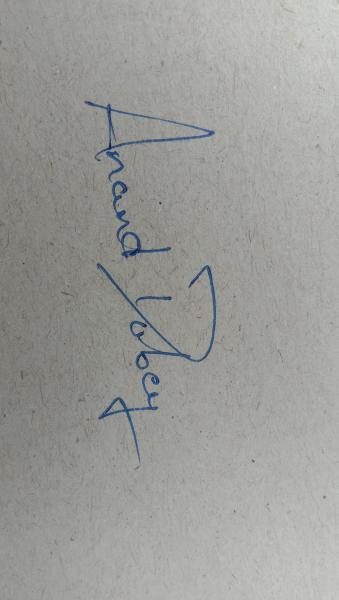 Anand Dubey